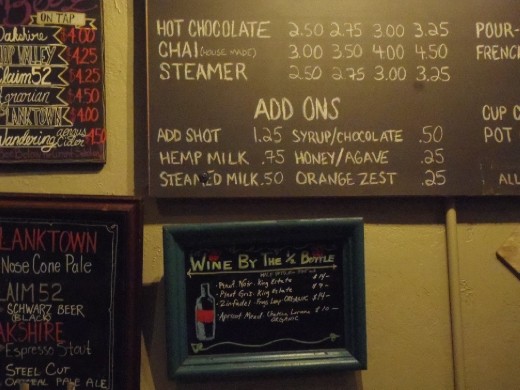 ON TAP
Oakshire $4.00
VALLEY $4.25
Claim 52 $4.25
Agrarian $4.50
PLANKTOWN $4.00
Wandering aengus Cider $4.50
HOT CHOCOLATE 2.50 2.75 3.00 3.25
CHAI (HOUSE MADE) 3.00 3.50 4.00 4.50
STEAMER 2.50 2.75 3.00 3.25
ADD ONS
ADD SHOT 1.25 SYRUP/CHOCOLATE .50
HEMP MILK .75 HONEY/AGAVE .25
STEAMED MILK .50 ORANGE ZEST .25
POUR-
FRENC
CUP
POT
ALL
LANKTOWN
Nose Cone Pale
LAIM 52
SCHWARZ BEER
(BLACK)
AKSHIRE
Espresso Stout
STEEL CUT
OATMEAL PALE ALE
WINE BY THE ½ BOTTLE
Pinot Noir. King Estate
Pinot Gris. King Estate
Zinfadel ORGANIC $14-
Apricot Mead. $10-
ORGANIC